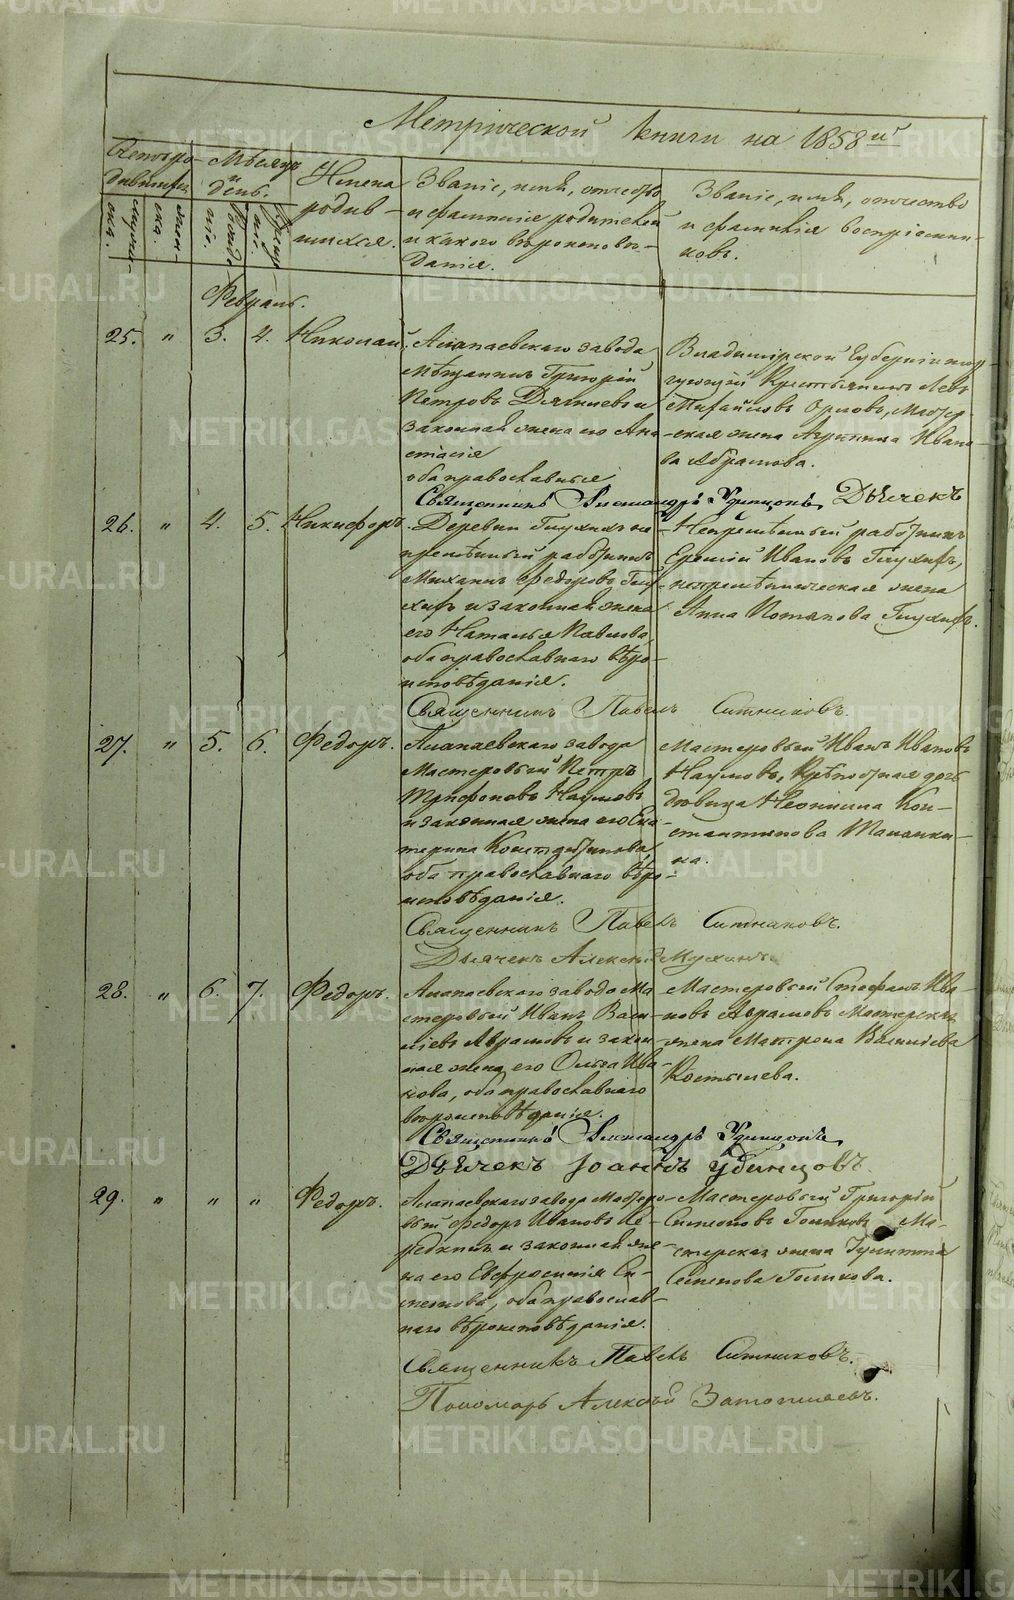 Метрической книги на 1858 й
Счетъ ро-
дившихся
Мѣсяцъ
и
день.
Имена
родив-
шихся.
Званіе, имя, отчество
и фамилія родителей
и какого вѣроисповѣ-
данія.
Званіе, имя, отчество
и фамилія воспріемни-
ковъ.
Февраль.
25. " 3. 4. Николай.
Алапаевскаго завода
мѣщанинъ Григорій
Петровъ и
законная жена его Ана-
стасія
оба православные
Владимірской Губерніи
Крестьянинъ Левъ
Михайловъ Орловъ, Мастер-
ская жена Агрипина Ивано-
ва Абрамова.
Священникъ Александръ Удинцовъ, Дьячекъ
26. " 4. 5. Никифоръ.
Деревни Глухихъ не-
премѣнный работникъ
Михаилъ Федоровъ Глу-
хихъ и законная жена
его Наталья Павлова,
оба православнаго вѣро-
исповѣданія.
Непремѣнный работникъ
Еремій Ивановъ Глухихъ,
непремѣнническая жена
Анна Потапова Глухихъ.
Священникъ Павелъ Ситниковъ.
27. " 5. 6. Федоръ.
Алапаевскаго завода
Мастеровый Петръ
Трифоновъ Наумовъ
и законная жена его Ека-
терина Константинова,
оба православнаго вѣро-
исповѣданія.
Мастеровый Иванъ Ивановъ
Наумовъ, Крѣпостная дочь
дѣвица Неонилла Кон-
стантинова
на.
Священникъ Павелъ Ситниковъ.
Дьячекъ Алексѣй Мухинъ.
28. " 6. 7. Федоръ.
Алапаевскаго завода Ма-
стеровый Иванъ Васи-
ліевъ Абрамовъ и закон-
ная жена его Ольга Ива-
нова, оба православнаго
вѣроисповѣданія.
Мастеровый Стефанъ Ива-
новъ Абрамовъ Мастерская
жена Матрона Василіева
Костылева.
Священникъ Александръ Удинцовъ,
Дьячекъ Іоаннъ Удинцовъ.
29. " " " Федоръ.
Алапаевскаго завода Мастеро-
вый Федоръ Ивановъ Не-
редкинъ и законная же-
на его Евфросинія Си-
меонова, оба православ-
наго вѣроисповѣданія.
Мастеровый Григорій
Симеоновъ Голиковъ Ма-
стерская жена
Семенова Голикова.
Священникъ Павелъ Ситниковъ.
Пономарь Алексѣй Затопляевъ.
METRIKI.GASO-URAL.RU